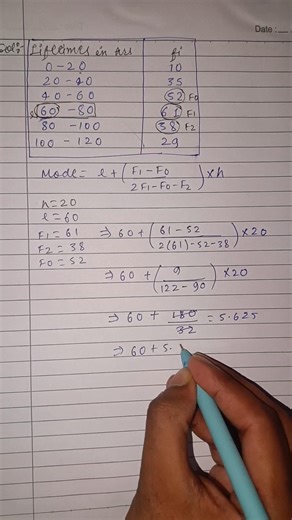 Date :
Sol:- Lifetimes in hrs fi
0-20 10
20-40 35
40-60 52 F0
l 60-80 61 F1
80-100 38 F2
100-120 29
Mode = l + (F1-F0 / 2F1-F0-F2) × h
h=20
l=60
F1=61 ⇒ 60 + (61-52 / 2(61)-52-38) × 20
F2=38
F0=52
⇒ 60 + (9 / 122-90) × 20
⇒ 60 + 180 / 32 = 5.625
⇒ 60 + 5.